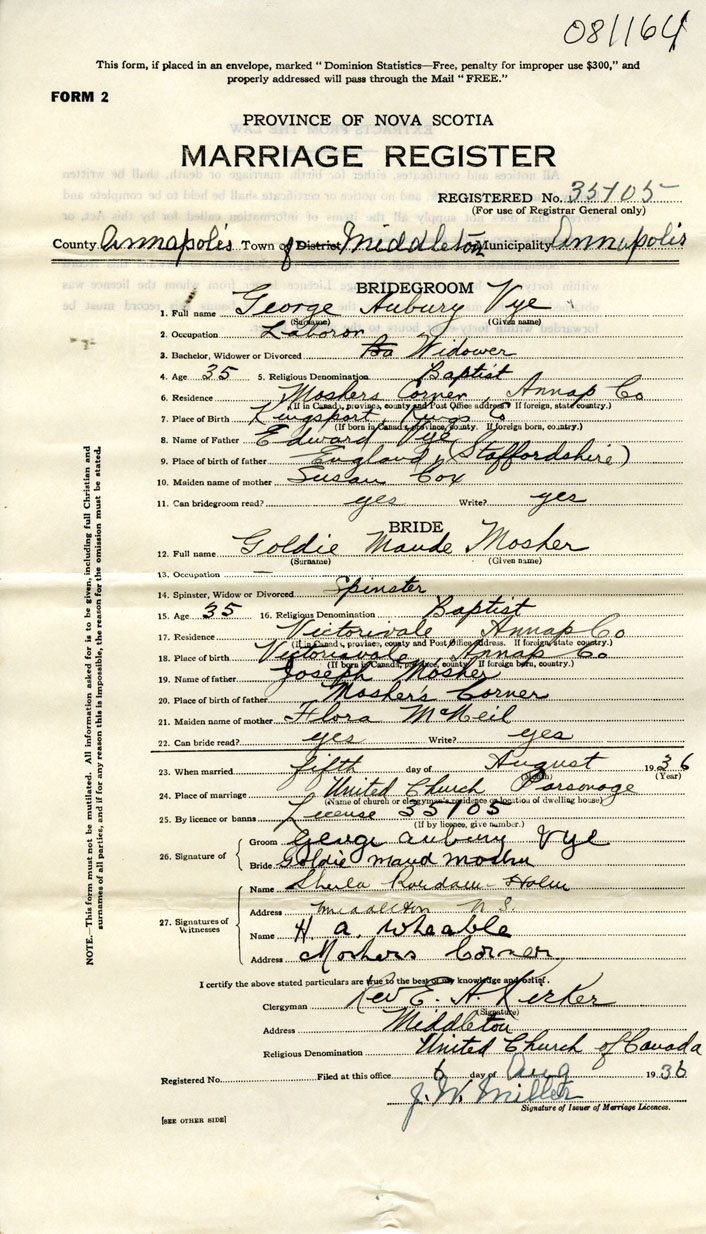 081164
This form, if placed in an envelope, marked "Dominion Statistics—Free, penalty for improper use $300," and
properly addressed will pass through the Mail "FREE."
FORM 2
PROVINCE OF NOVA SCOTIA
MARRIAGE REGISTER
REGISTERED No. 35105
(For use of Registrar General only)
County Annapolis Town of District Middleton Municipality Annapolis
BRIDEGROOM
1. Full name George Aubury Vye
(Surname) (Given name)
2. Occupation Laborer
3. Bachelor, Widower or Divorced Widower
4. Age 35 5. Religious Denomination Baptist
6. Residence Moshers Corner, Annap Co
(If in Canada, province, county and Post Office address. If foreign, state country.)
7. Place of Birth Kingsport, Kings Co
(If born in Canada, province, county. If foreign born, country.)
8. Name of Father Edward Vye
9. Place of birth of father England, (Staffordshire)
10. Maiden name of mother Susan Cox
11. Can bridegroom read? yes Write? yes
BRIDE
12. Full name Goldie Maude Mosher
(Surname) (Given name)
13. Occupation —
14. Spinster, Widow or Divorced Spinster
15. Age 35 16. Religious Denomination Baptist
17. Residence Victoriavale Annap Co
(If in Canada, province, county and Post Office address. If foreign, state country.)
18. Place of birth Victoriavale, Annap Co
(If born in Canada, province, county. If foreign born, country.)
19. Name of father Joseph Mosher
20. Place of birth of father Mosher's Corner
21. Maiden name of mother Flora McNeil
22. Can bride read? yes Write? yes
23. When married fifth day of August 1936
(Month) (Year)
24. Place of marriage United Church Parsonage
(Name of church or clergyman's residence or location of dwelling house)
25. By licence or banns License 35105
(If by licence, give number.)
26. Signature of
Groom George Aubury Vye
Bride Goldie Maud Mosher
27. Signatures of Witnesses
Name Sheila
Address Middleton N S.
Name H a. Wheable
Address Moshers Corner
I certify the above stated particulars are true to the best of my knowledge and belief.
Clergyman Rev E. A. Kirker
(Signature)
Address Middleton
Religious Denomination United Church of Canada
Registered No. Filed at this office 6 day of Aug 1936
J. W. Miller
Signature of Issuer of Marriage Licences.
[SEE OTHER SIDE]
NOTE.—This form must not be mutilated. All information asked for is to be given, including full Christian and
surnames of all parties, and if for any reason this is impossible, the reason for the omission must be stated.